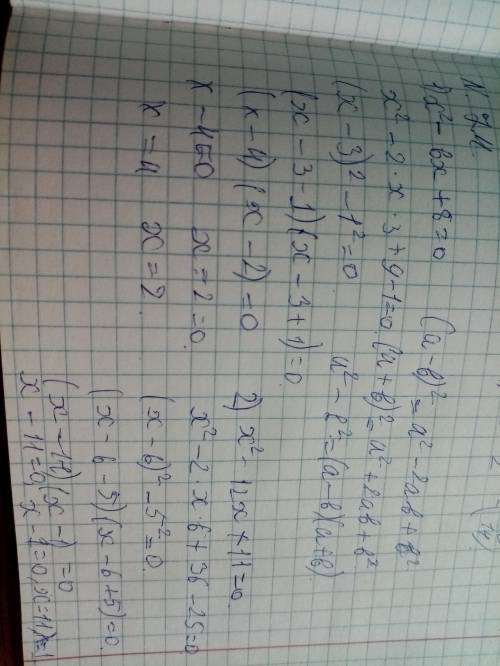 1) x² - 6x + 8 = 0
x² - 2·x·3 + 9 - 1 = 0
(x - 3)² - 1² = 0
(x - 3 - 1)(x - 3 + 1) = 0
(x - 4)(x - 2) = 0
x - 4 = 0 x = 2 = 0
x = 4 x = 2
(a - b)² = a² - 2ab + b²
(a + b)² = a² + 2ab + b²
a² - b² = (a - b)(a + b)
2) x² - 12x + 11 = 0
x² - 2·x·6 + 36 - 25 = 0
(x - 6)² - 5² = 0
(x - 6 - 5)(x - 6 + 5) = 0
(x - 11)(x - 1) = 0
x - 11 = 0, x - 1 = 0, x = 11